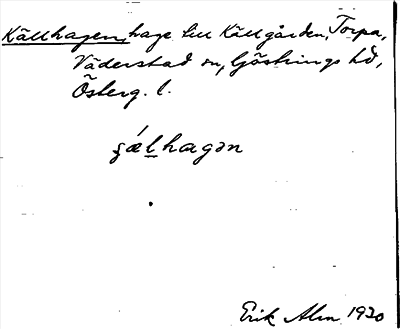 Källhagen, hage till Källgården, Torpa,
Väderstad sn, Göstrings hd,
Österg. l.
ɕǽḻhagən
Erik Alm 1920